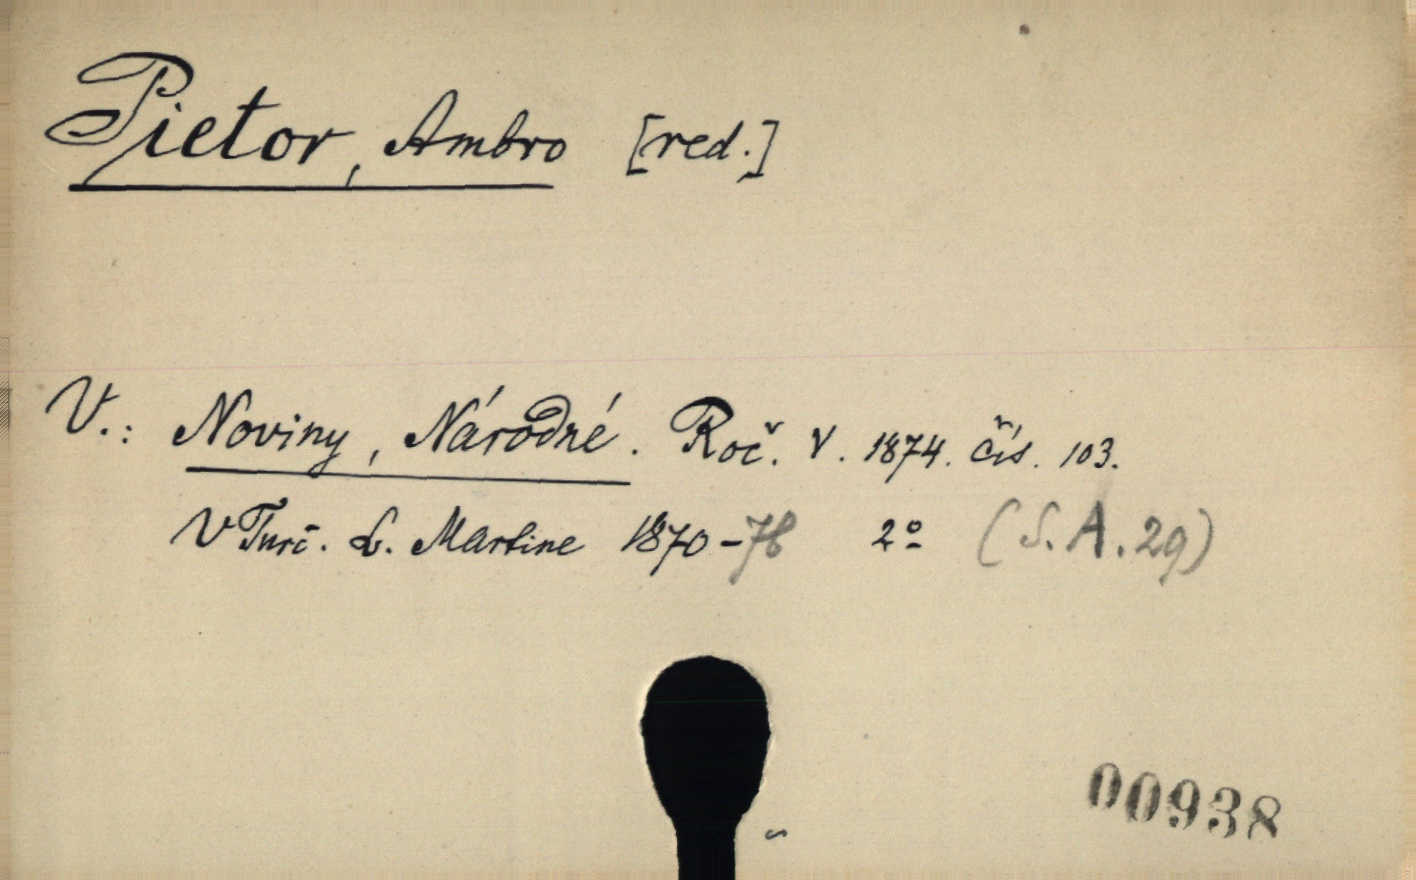 Pietor, Ambro [red.]
V.: Noviny, Národné. Roč. V. 1874. čís. 103.
V Turč. S. Martine 1870-76 2º (S. A. 29)
00938